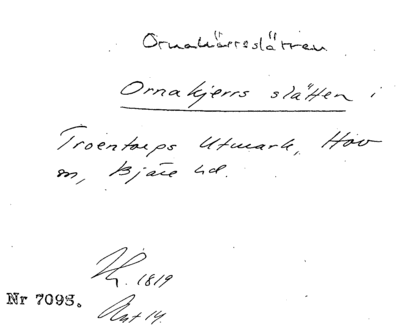 Ornakärrsslätten
Ornakjerrs slätten i
Troentorps Utmark, Hov
sn, Bjäre hd.
1819
Nr 7093.
Akt 14.